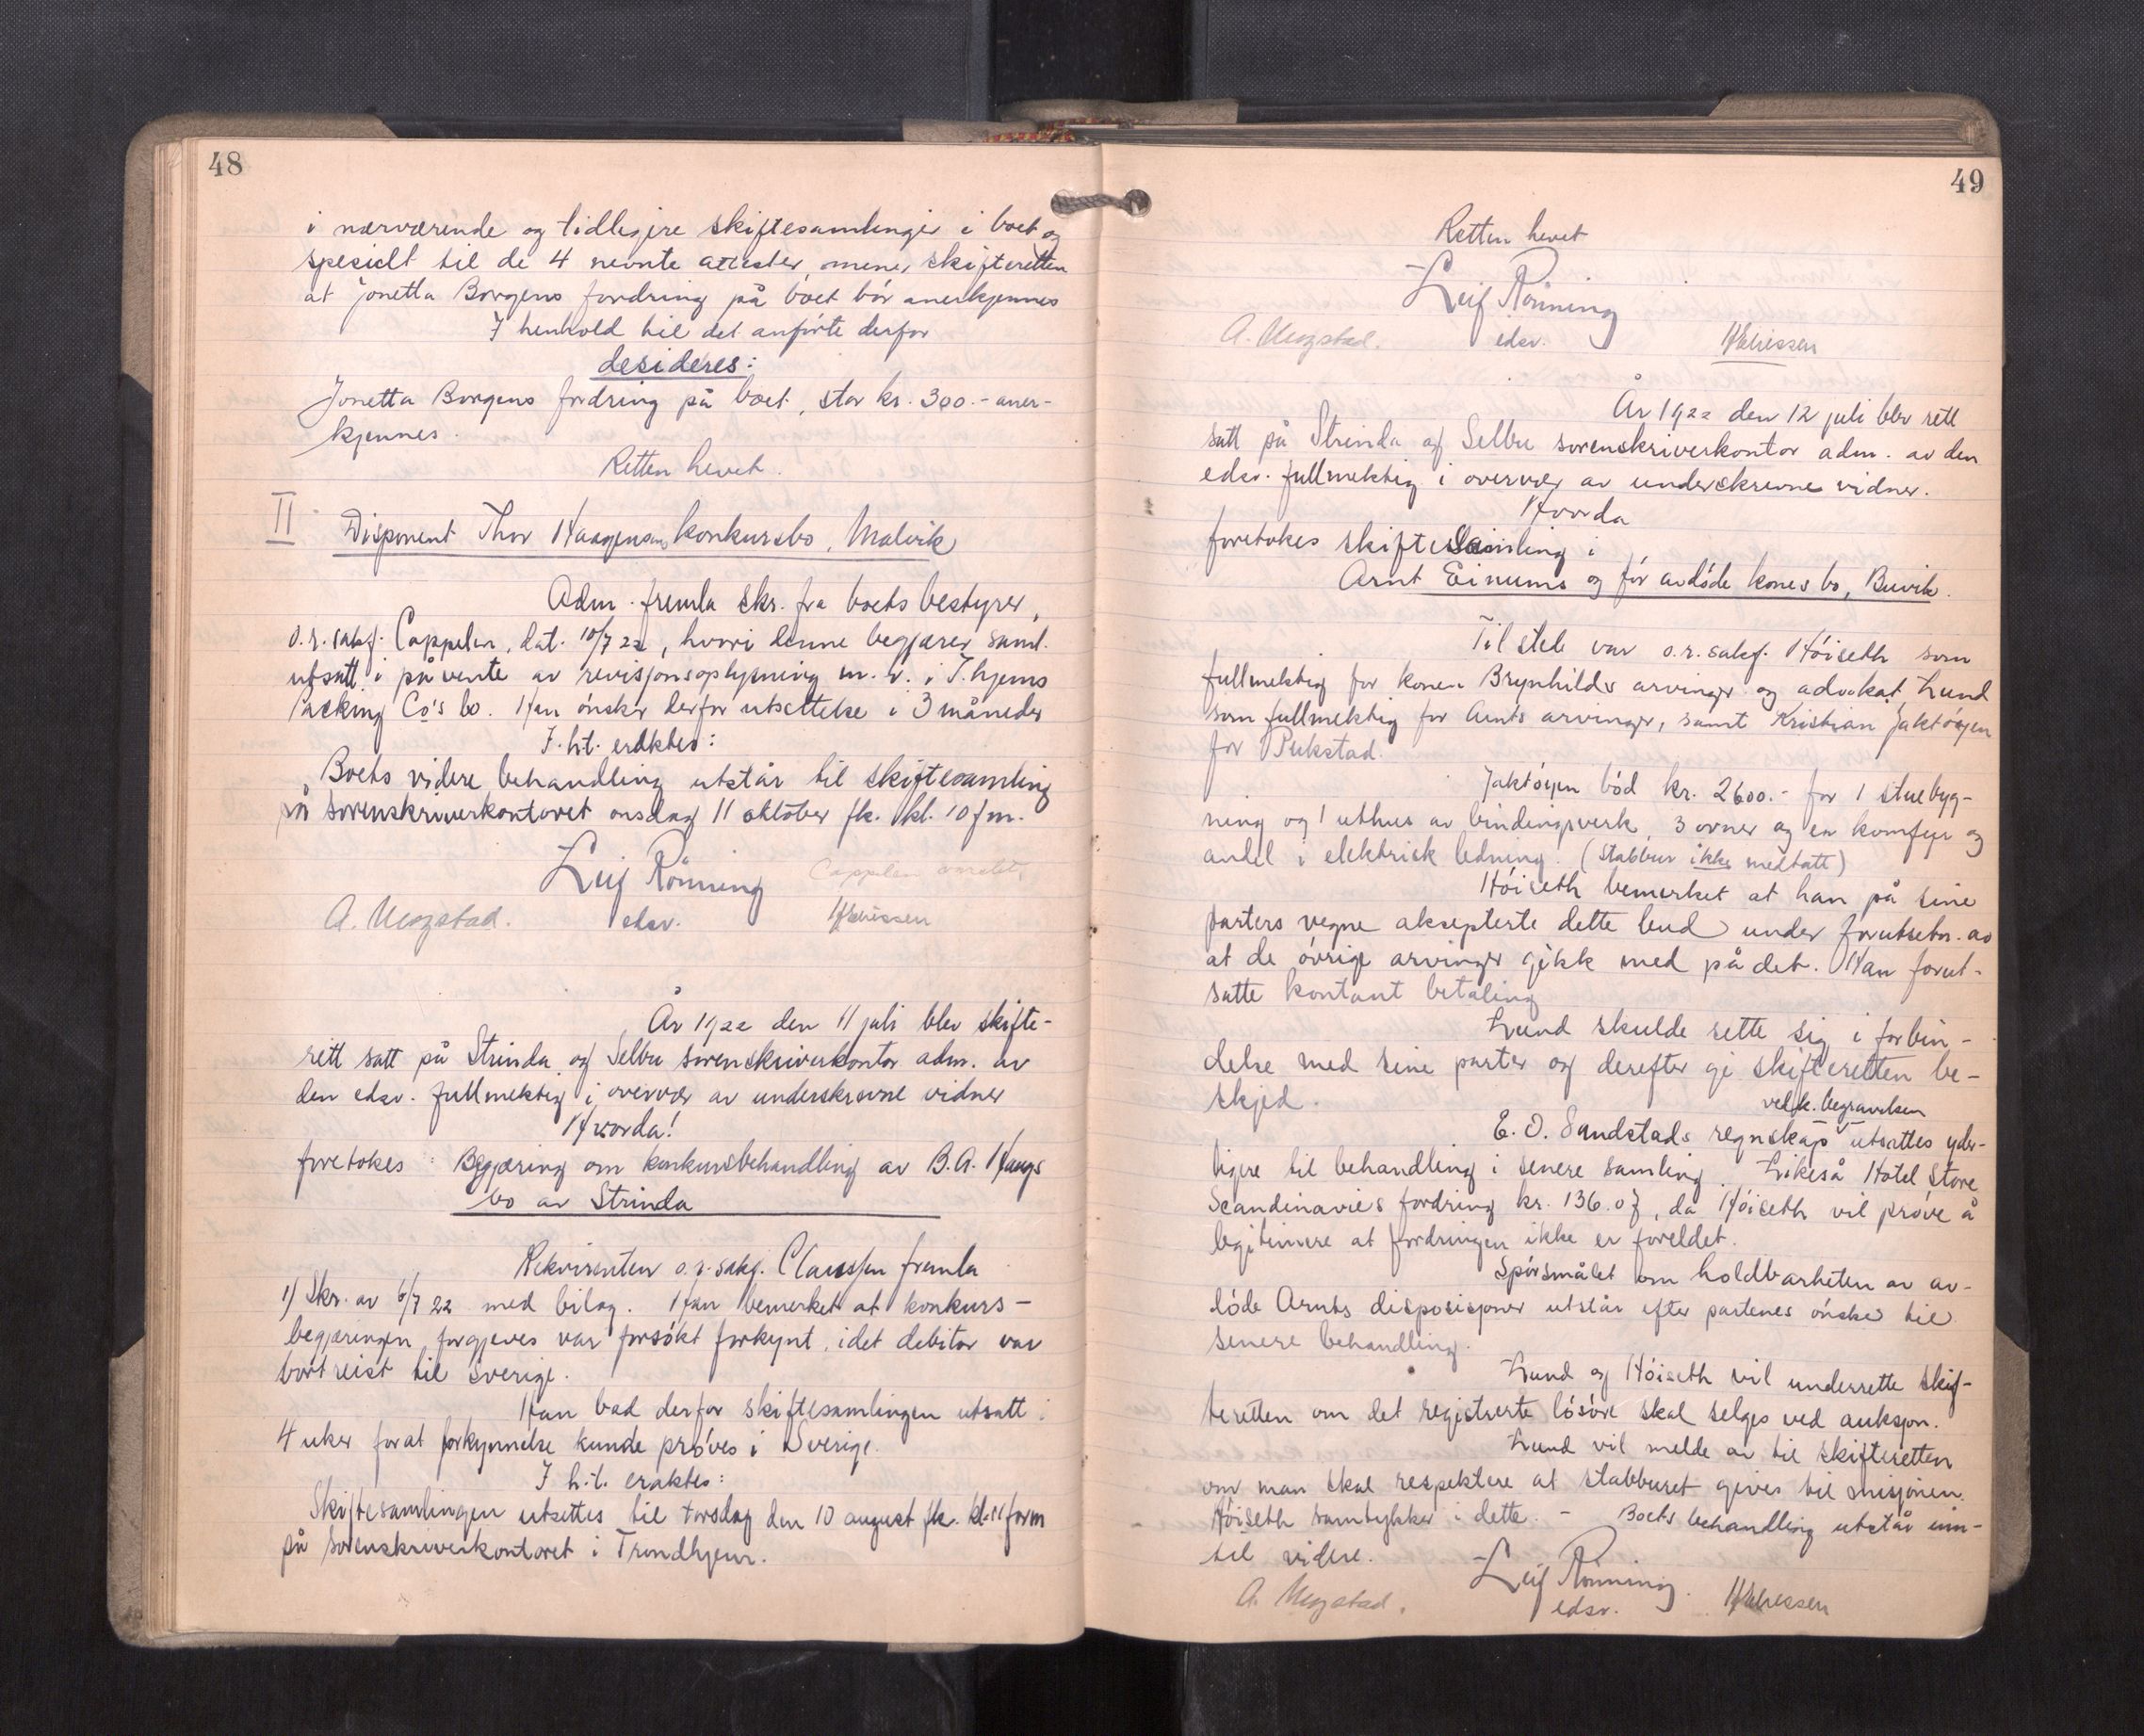 48
i nærværende og tidligere skiftesamlinger i boet og
spesielt til de 4 nevnte attester, mener skifteretten
at Jonetta Borgens fordring på boet bör anerkjennes
I henhold til det anförte derfor
desideres:
Jonetta Borgens fordring på boet, stor kr. 300.- aner-
kjennes.
Retten hevet.
II
Disponent Thor Haagensens konkursbo, Malvik
Adm. fremla skr. fra boets bestyrer,
o.r.sakf. Cappelen, dat. 10/7 22, hvori denne begjærer saml.
utsatt i påvente av revisjonsoplysning m.v. i T.hjems
Packing Co's bo. Han önsker derfor utsettelse i 3 måneder
I. h.t. eraktes:
Boets videre behandling utstår til skiftesamling
på sorenskriverkontoret onsdag 11 oktober fk. kl. 10 fm.
Leif Rönning
Cappelen
A. Mogstad.
edsv.
År 1922 den 11 juli blev skifte-
rett satt på Strinda og Selbu sorenskriverkontor adm. av
den edsv. fullmektig i overvær av underskrevne vidner
Hvorda!
foretokes: Begjæring om konkursbehandling av B.A. Haugs
bo av Strinda
Rekvirenten o.r.sakf. Claussen fremla
1) Skr. av 6/7 22 med bilag. Han bemerket at konkurs-
begjæringen forgjeves var forsökt forkynt, idet debitor var
bortreist til Sverige.
Han bad derfor skiftesamlingen utsatt i
4 uker forat forkynnelse kunde pröves i Sverige.
I h.t. eraktes:
Skiftesamlingen utsettes til torsdag den 10 august fk. kl. 11 form
på sorenskriverkontoret i Trondhjem.
49
Retten hevet
Leif Rönning
A. Mogstad.
edsv.
År 1922 den 12 juli blev rett
satt på Strinda og Selbu sorenskriverkontor adm. av den
edsv. fullmektig i overvær av underskrevne vidner.
Hvorda
foretokes skiftesamling i
Arnt Einums og för avdöde kones bo, Buvik.
Tilstede var o.r.sakf. Höiseth som
fullmektig for konen Brynhilds arvinger og advokat Lund
som fullmektig for Arnts arvinger, samt Kristian Jaktöyen
for Pukstad.
Jaktöyen böd kr. 2600.- for 1 stuebyg-
ning og 1 uthus av bindingsverk, 3 ovner og en komfyr og
andel i elektrisk ledning. (Stabbur ikke medtatt)
Höiseth bemerket at han på sine
parters vegne aksepterte dette bud under forutsetn. av
at de övrige arvinger gikk med på det. Han forut-
satte kontant betaling
Lund skulde sette sig i forbin-
delse med sine parter og derefter gi skifteretten be-
skjed.
vedk. begravelsen
E. O. Sandstads regnskap utsattes yder-
ligere til behandling i senere samling. Likeså Hotel Store
Scandinavies fordring kr. 136.07, da Höiseth vil pröve å
legitimere at fordringen ikke er foreldet.
Spörsmålet om holdbarheten av av-
döde Arnts disposisjoner utstår efter partenes önske til
senere behandling.
Lund og Höiseth vil underrette skif-
teretten om det registrerte lösöre skal selges ved auksjon.
Lund vil melde av til skifteretten
om man skal respektere at stabburet gives til misjonen.
Höiseth samtykker i dette. - Boets behandling utstår inn-
til videre.
Leif Rönning.
A. Mogstad.
edsv.